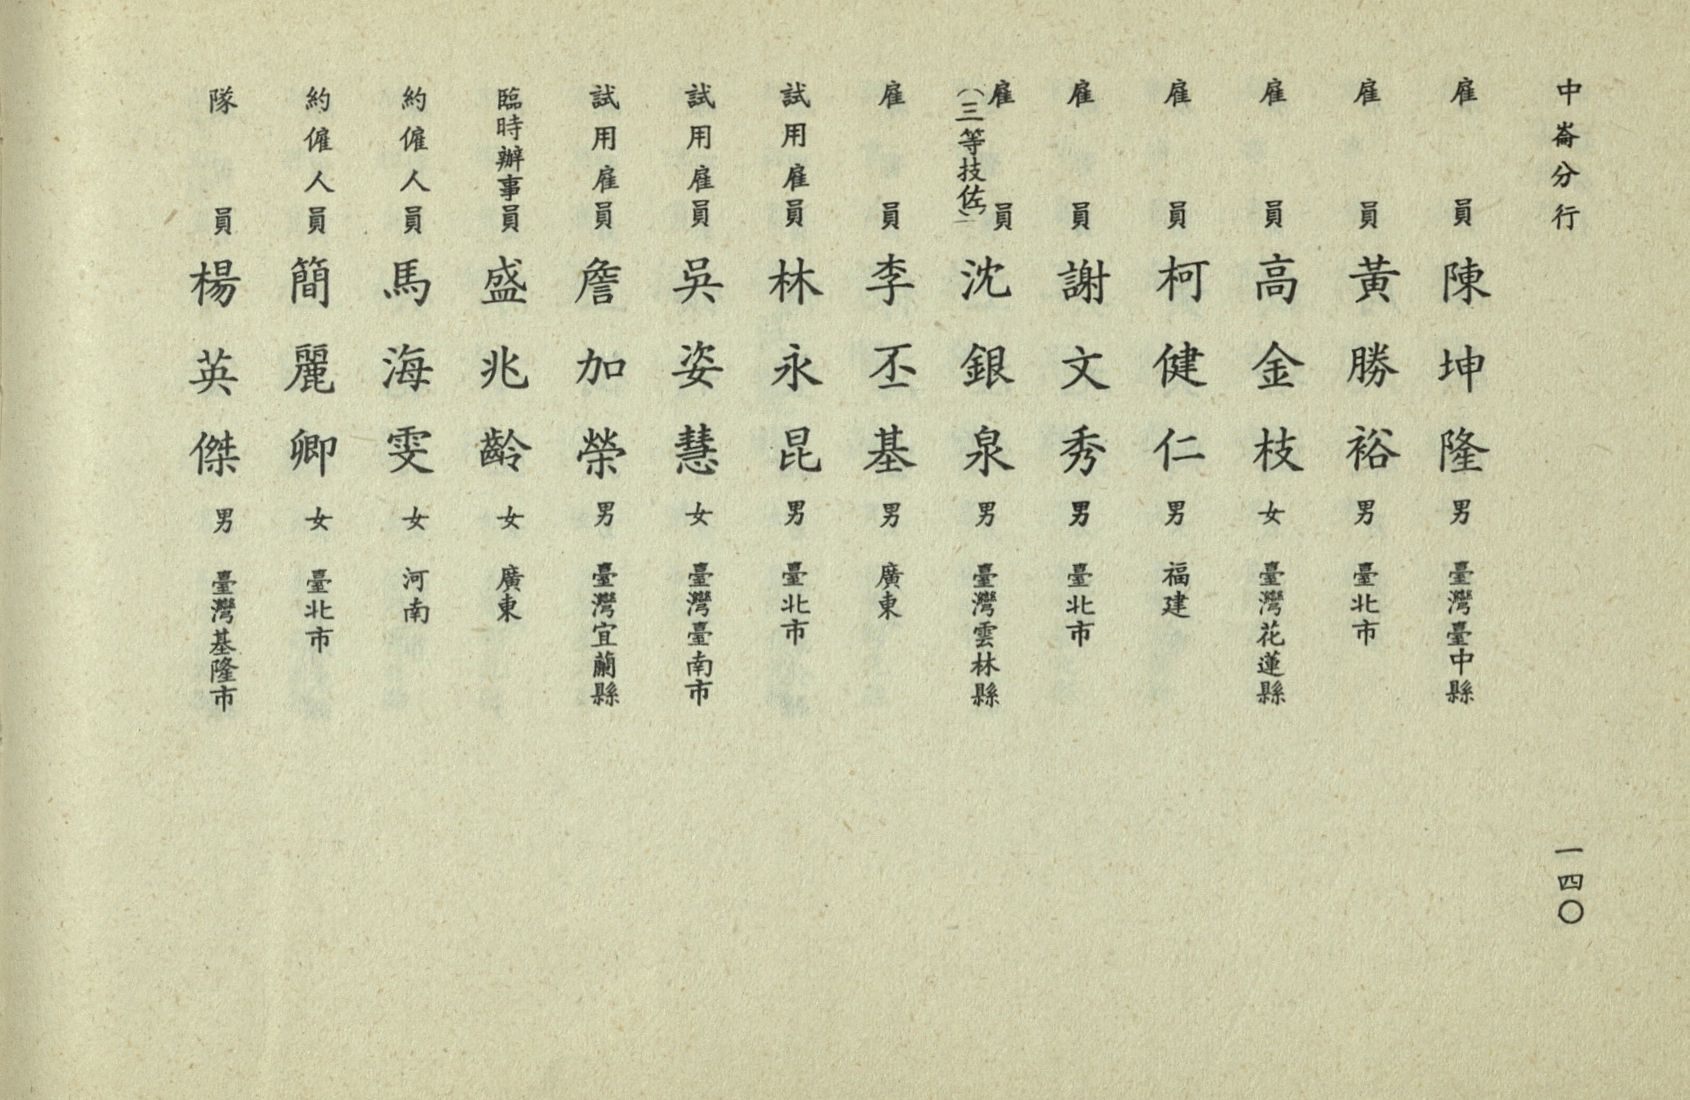 中崙分行 一四〇
雇員 陳坤隆 男 臺灣臺中縣
雇員 黃勝裕 男 臺北市
雇員 高金枝 女 臺灣花蓮縣
雇員 柯健仁 男 福建
雇員 謝文秀 男 臺北市
雇員(三等技佐) 沈銀泉 男 臺灣雲林縣
雇員 李丕基 男 廣東
試用雇員 林永昆 男 臺北市
試用雇員 吳姿慧 女 臺灣臺南市
試用雇員 詹加榮 男 臺灣宜蘭縣
臨時辦事員 盛兆齡 女 廣東
約僱人員 馬海雯 女 河南
約僱人員 簡麗卿 女 臺北市
隊員 楊英傑 男 臺灣基隆市